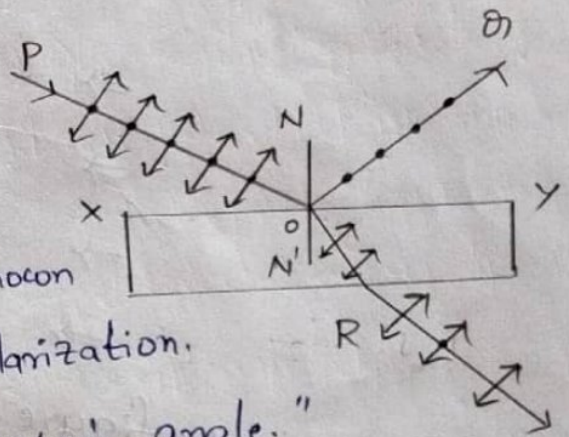 P
N
X
Y
O
N'
R
larization.
angle."